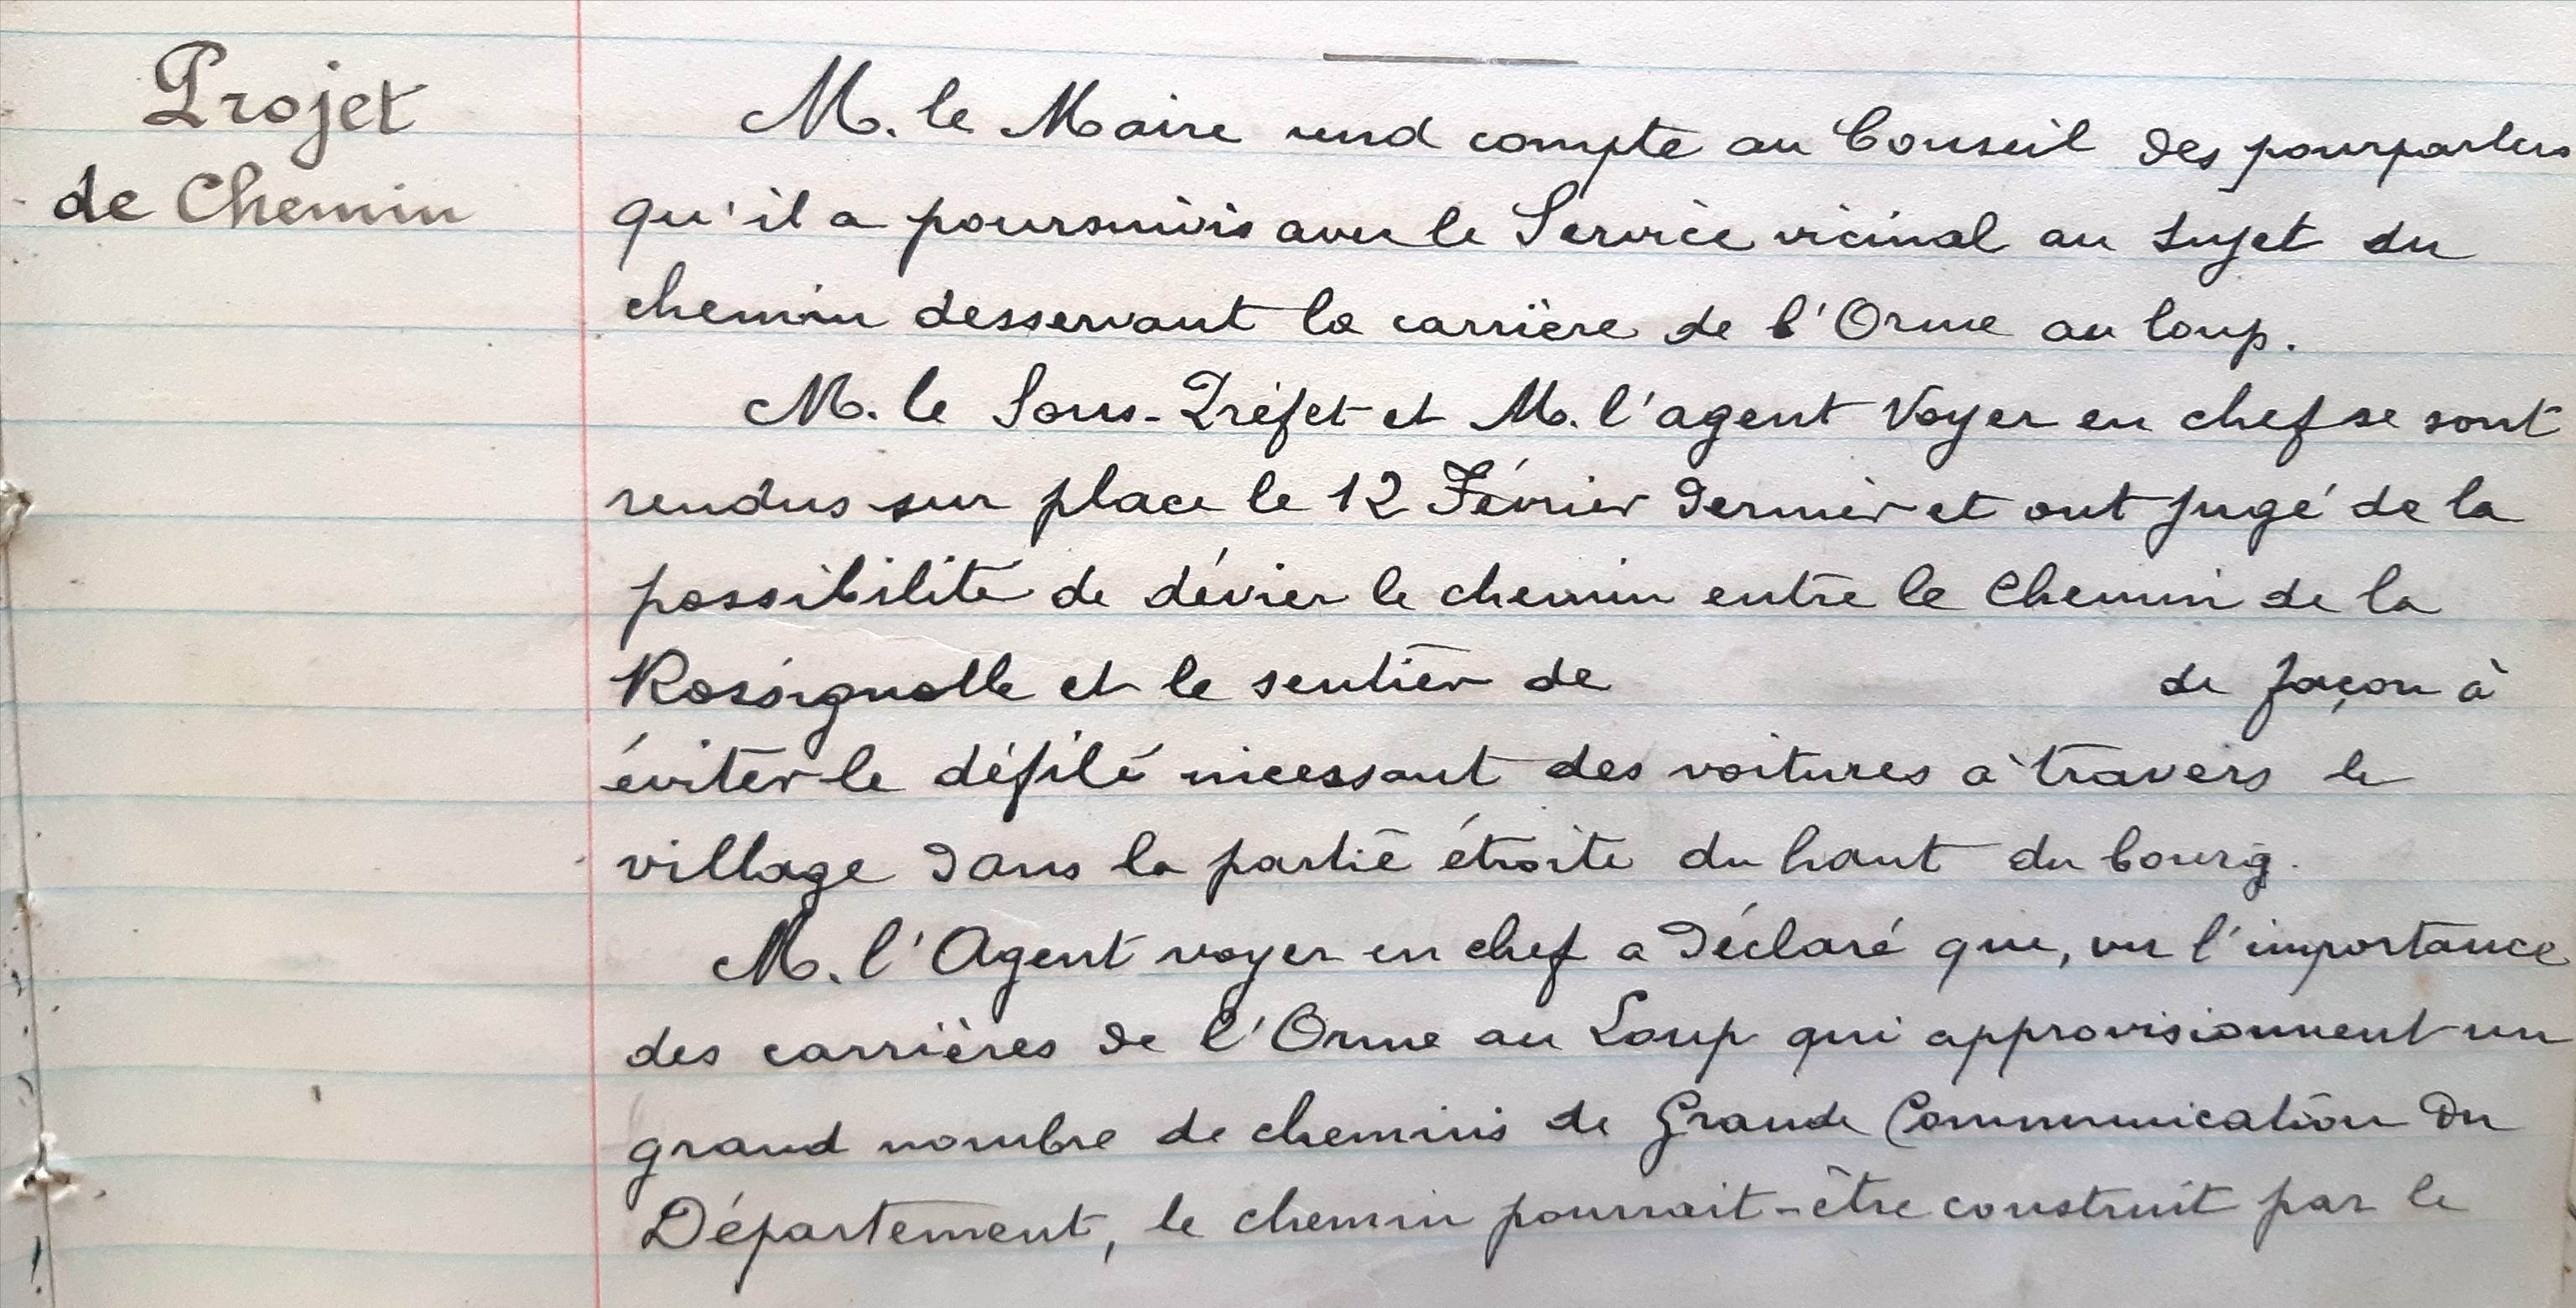 Projet
de Chemin
M. le Maire rend compte au Conseil des pourparlers
qu'il a poursuivis avec le Service vicinal au sujet du
chemin desservant la carrière de l'Orme au loup.
M. le Sous-Préfet et M. l'agent Voyer en chef se sont
rendus sur place le 12 Février dernier et ont jugé de la
possibilité de dévier le chemin entre le Chemin de la
Rossignolle et le sentier de de façon à
éviter le défilé incessant des voitures à travers le
village dans la partie étroite du haut du bourg.
M. l'Agent voyer en chef a déclaré que, vu l'importance
des carrières de l'Orme au Loup qui approvisionnent un
grand nombre de chemins de Grande Communication du
Département, le chemin pourrait-être construit par le